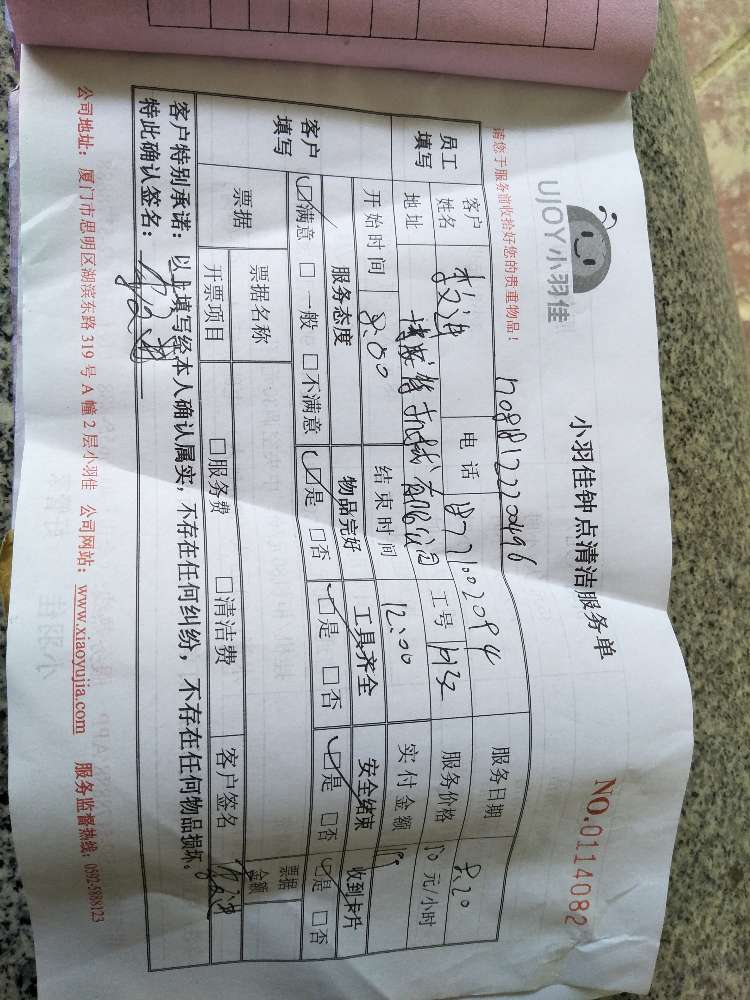 UJOY小羽佳
小羽佳钟点清洁服务单
NO.0114082
请您于服务前收拾好您的贵重物品！
员工填写
客户姓名
电话
服务日期
8.20
地址
工号
服务价格
元/小时
开始时间
8:00
结束时间
12:00
实付金额
客户填写
服务态度
物品完好
工具齐全
安全结束
收到卡片
☑满意 □一般 □不满意
☑是 □否
☑是 □否
☑是 □否
☑是 □否
票据
票据名称
票据金额
开票项目
□服务费 □清洁费
客户签名
客户特别承诺：以上填写经本人确认属实，不存在任何纠纷，不存在任何物品损坏。
特此确认签名：
公司地址：厦门市思明区湖滨东路 319 号 A 幢 2 层小羽佳 公司网站：www.xiaoyujia.com 服务监督热线：0592-5888123